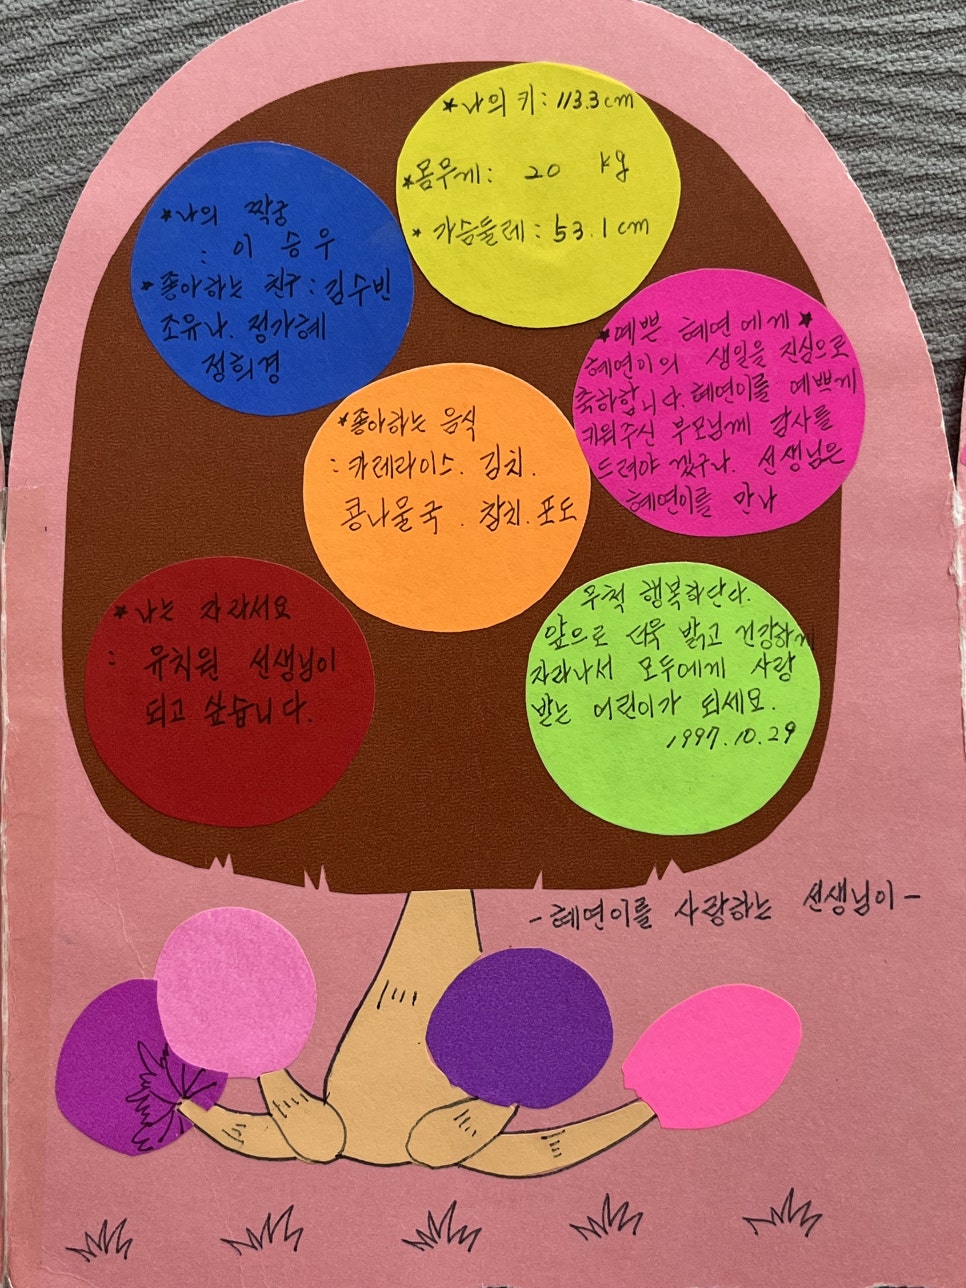 ★나의 키 : 113.3cm
★몸무게 : 20 kg
★가슴둘레 : 53.1cm
★나의 짝궁
: 이승우
★좋아하는 친구 : 김수빈
조유나. 정가혜
정희경
★좋아하는 음식
: 카레라이스. 김치.
콩나물국. 참치. 포도
★나는 자라서요
: 유치원 선생님이
되고 싶습니다.
★예쁜 혜연에게★
혜연이의 생일을 진심으로
축하합니다. 혜연이를 예쁘게
키워주신 부모님께 감사를
드려야 겠구나. 선생님은
혜연이를 만나
무척 행복하단다.
앞으로 더욱 밝고 건강하게
자라나서 모두에게 사랑
받는 어린이가 되세요.
1997.10.29
-혜연이를 사랑하는 선생님이-